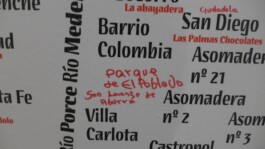 la abayadera
Ciudadela
San Diego
Las Palmas Chocolates
Barrio
Colombia
Asomadera
nº 21
Río Porce Río Mede
parque
de El Poblado
San Lorenzo de
Aburrá
Asomadera
nº 2
nta Fe
Villa
Carlota
Asomadera
nº 3
Castropol